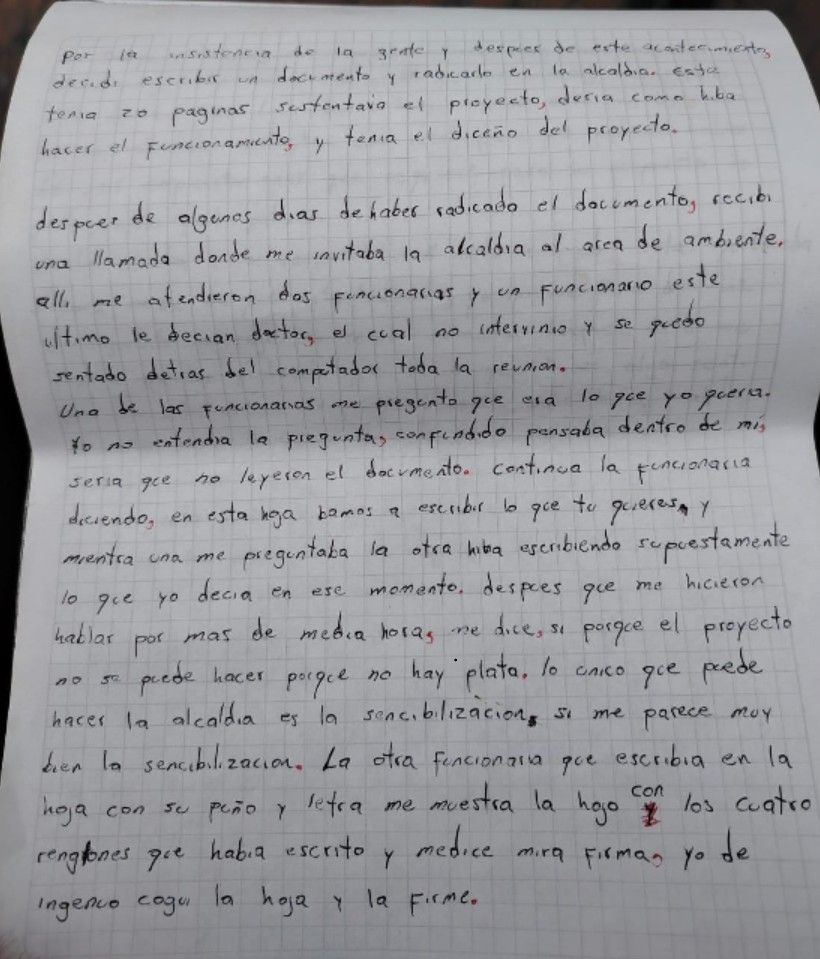 Por la insistencia de la gente y despues de este acontecimiento,
decidi escribir un documento y radicarlo en la alcaldia. Este
tenia 20 paginas sustentava el proyecto, decia como hiba
hacer el Funcionamiento, y tenia el diceño del proyecto.
despues de algunos dias de haber radicado el documento, recibi
una llamada donde me invitaba la alcaldia al area de ambiente.
alli me atendieron dos funcionarias y un Funcionario este
ultimo le decian doctor, el cual no intervinio y se quedo
sentado detras del computador toda la reunion.
Una de las funcionarias me pregunto que era lo que yo queria.
Yo no entendia la pregunta, confundido pensaba dentro de mi,
seria que no leyeron el documento. continua la funcionaria
diciendo, en esta hoja bamos a escribir lo que tu quieres, y
mientra una me preguntaba la otra hiba escribiendo supuestamente
lo que yo decia en ese momento. despues que me hicieron
hablar por mas de media hora, me dice, si porque el proyecto
no se puede hacer porque no hay plata. lo unico que puede
hacer la alcaldia es la sencibilizacion, si me parece muy
bien la sencibilizacion. La otra funcionaria que escribia en la
hoja con su puño y letra me muestra la hojo con los cuatro
renglones que habia escrito y medice mira Firma, yo de
ingenuo cogui la hoja y la Firme.